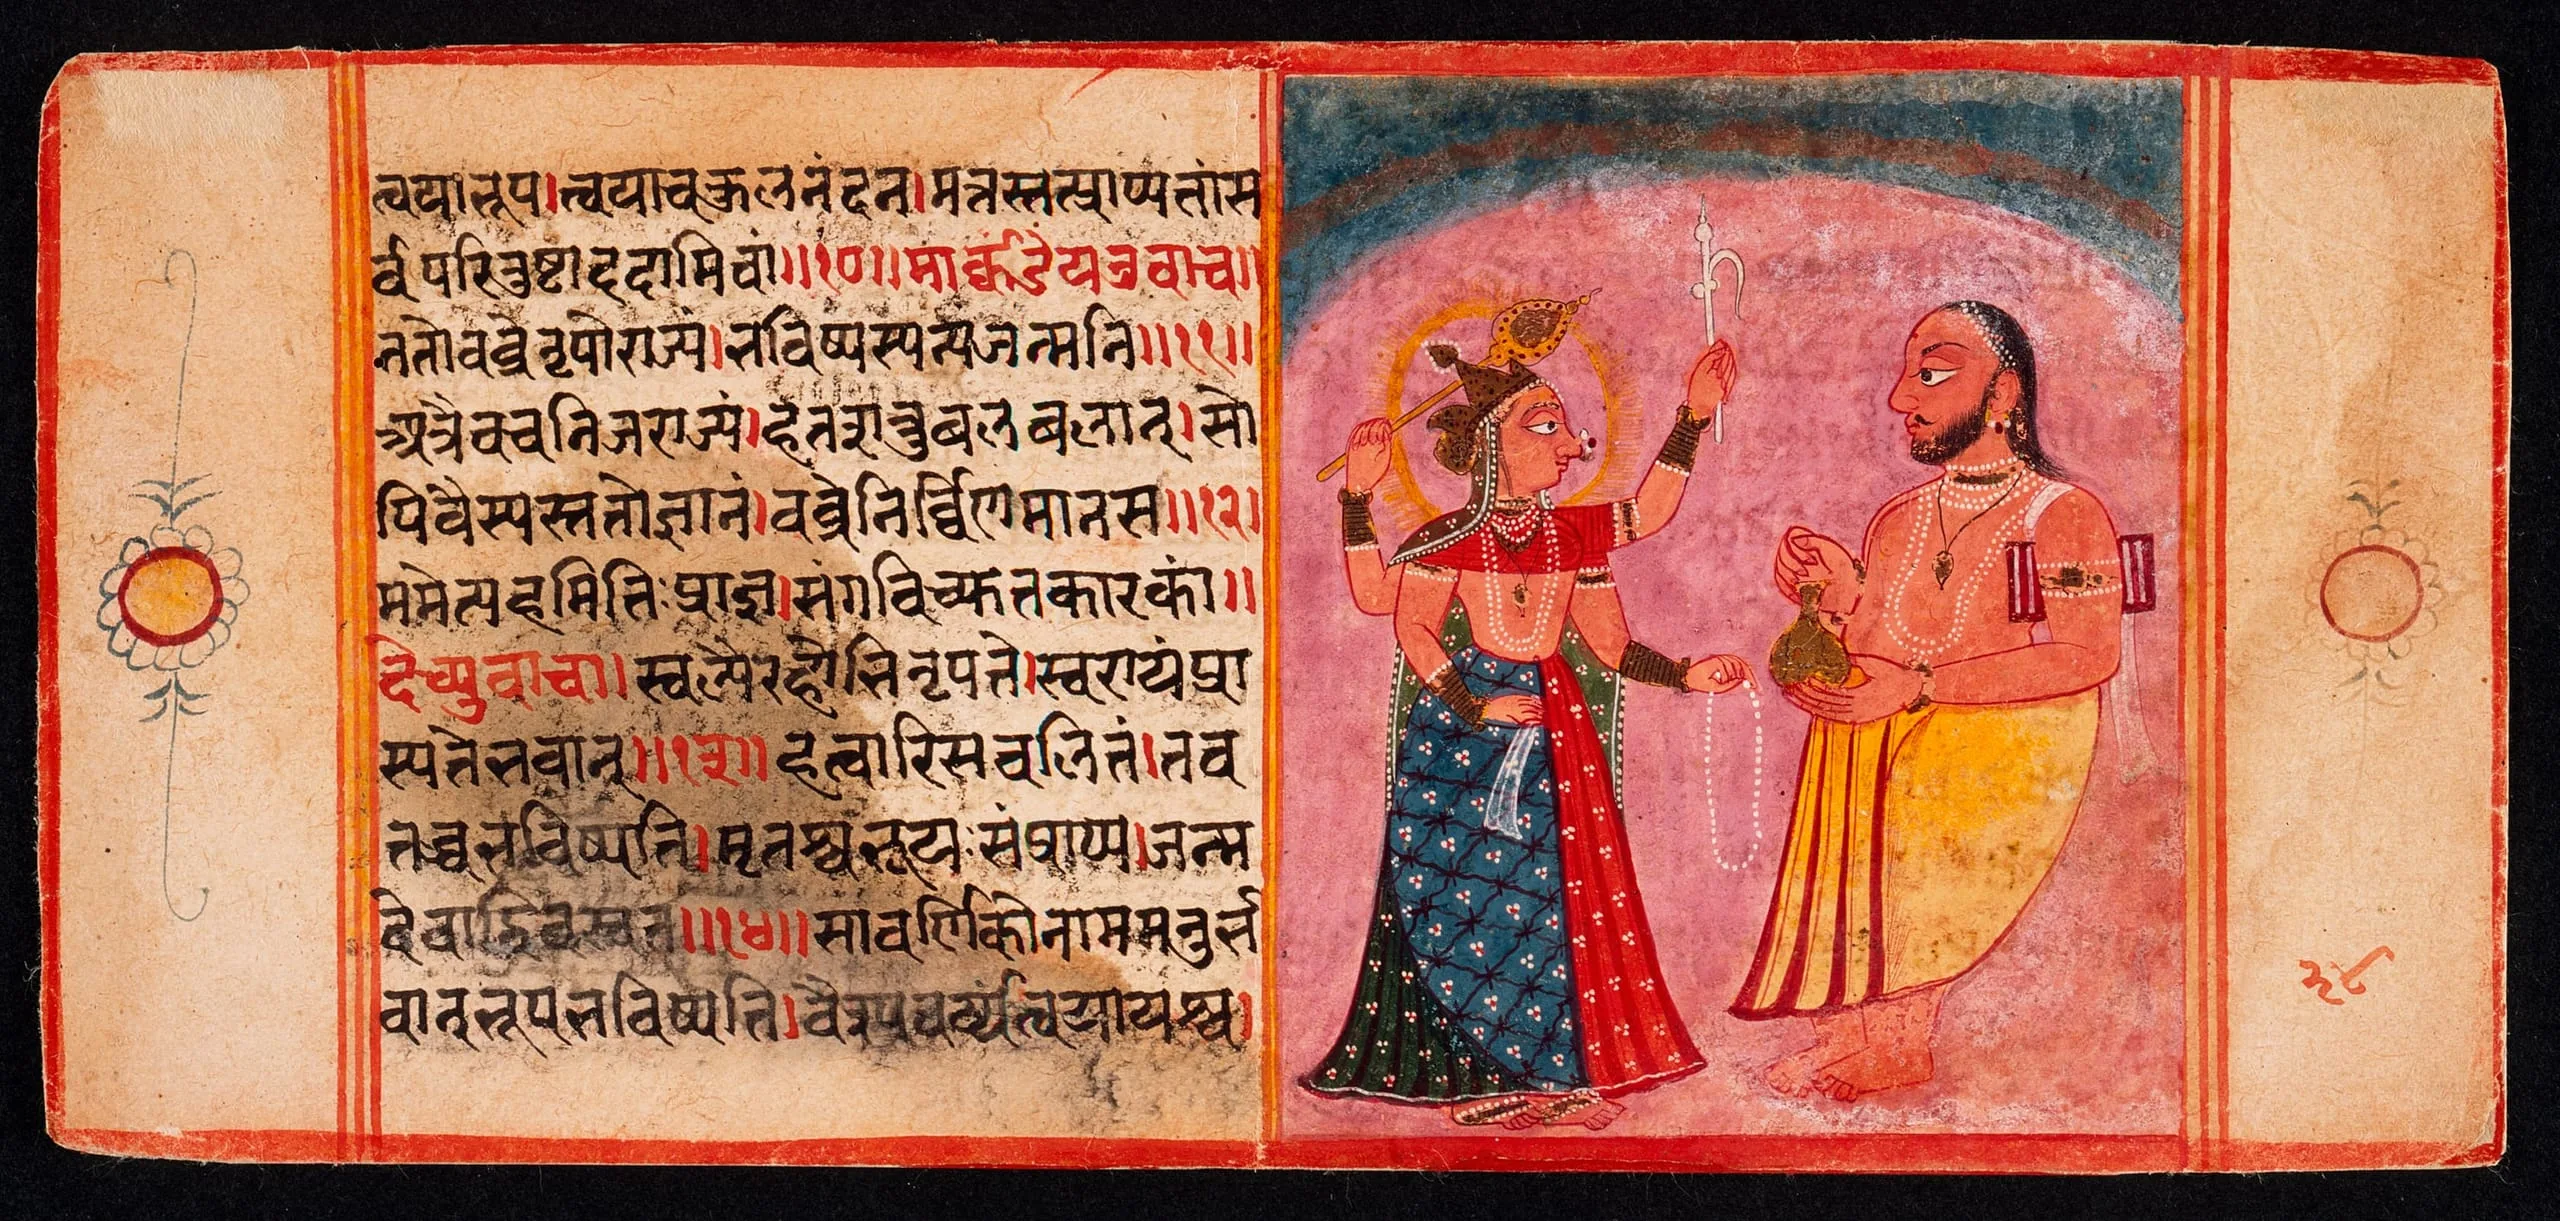 त्वयाभूप।त्वयाचकुलनंदन।मत्तस्तत्प्राप्यतांस
र्वंपरितुष्टाददामिवां॥१०॥मार्क्कंडेयउवाच॥
ततोवव्रेनृपोराज्यं।भविष्यस्यत्यजन्मनि॥११॥
अत्रैवचनिजराज्यं।हतशत्रुबलबलात्।सो
पिवैस्यस्ततोज्ञानं।वव्रेनिर्व्विणमानस॥१२॥
ममेत्यहमितिःप्राज्ञ।संगविच्युतकारकां॥
देव्युवाचा॥स्वल्पैरहोतिनृपते।स्वराज्यंप्रा
स्पतेभवान्॥१३॥हत्वारिसचलितं।तव
तत्रभविष्यति।मृतश्चभूयःसंप्राप्य।जन्म
देवाद्विवस्वत॥१४॥सावर्णिकोनाममनुर्भ
वान्भूपभविष्यति।वैश्यवर्य्यत्वयायश्च।
३८